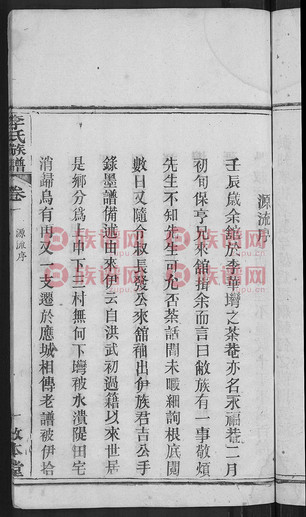 源流序
壬辰歲余館於李華壪之茶菴亦名永福菴二月
初旬保亨兄來館揖余而言曰敝族有一事敬煩
先生不知先生可允否茶話間未暇細詢根底閱
數日又隨介叔長發公來館袖出伊族君吉公手
錄墨譜備述由來伊云自洪武初過籍以來世居
是鄉分爲上中下三村無何下壪被水潰隄田宅
消歸烏有再又一支遷於應城相傳老譜被伊拾
李氏族譜
卷一
源流序
一
敦本堂
族谱网